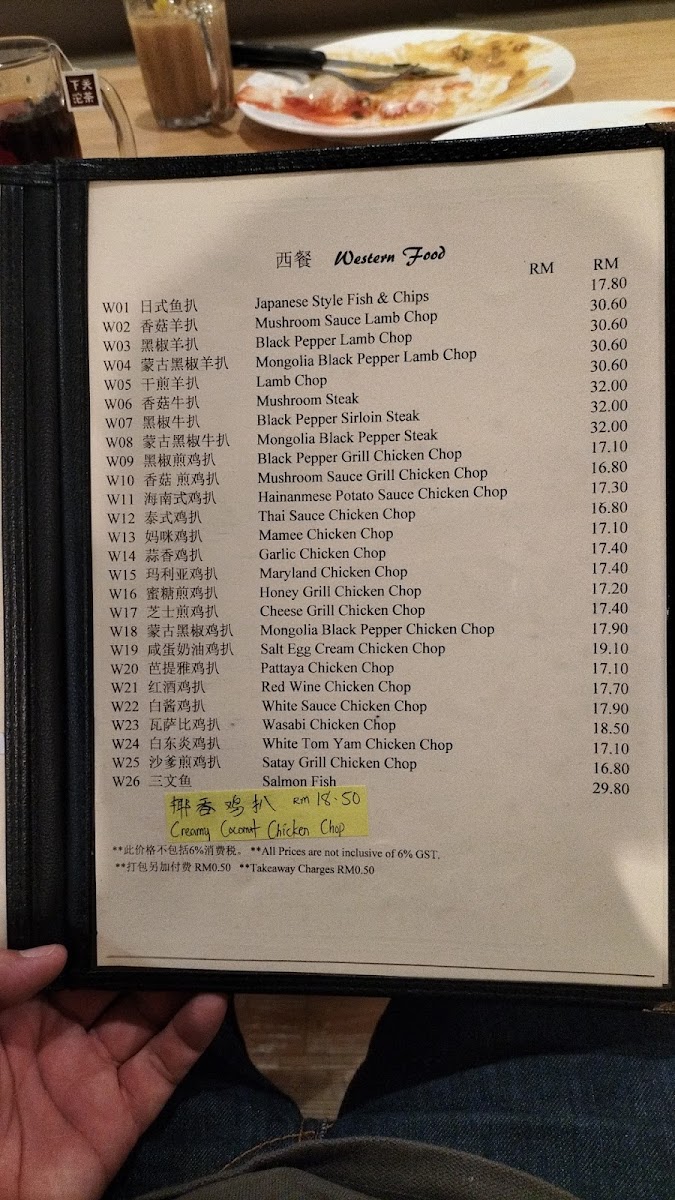 下关
沱茶
西餐 Western Food RM RM
W01 日式鱼扒 Japanese Style Fish & Chips 17.80
W02 香菇羊扒 Mushroom Sauce Lamb Chop 30.60
W03 黑椒羊扒 Black Pepper Lamb Chop 30.60
W04 蒙古黑椒羊扒 Mongolia Black Pepper Lamb Chop 30.60
W05 干煎羊扒 Lamb Chop 30.60
W06 香菇牛扒 Mushroom Steak 32.00
W07 黑椒牛扒 Black Pepper Sirloin Steak 32.00
W08 蒙古黑椒牛扒 Mongolia Black Pepper Steak 32.00
W09 黑椒煎鸡扒 Black Pepper Grill Chicken Chop 17.10
W10 香菇 煎鸡扒 Mushroom Sauce Grill Chicken Chop 16.80
W11 海南式鸡扒 Hainanmese Potato Sauce Chicken Chop 17.30
W12 泰式鸡扒 Thai Sauce Chicken Chop 16.80
W13 妈咪鸡扒 Mamee Chicken Chop 17.10
W14 蒜香鸡扒 Garlic Chicken Chop 17.40
W15 玛利亚鸡扒 Maryland Chicken Chop 17.40
W16 蜜糖煎鸡扒 Honey Grill Chicken Chop 17.20
W17 芝士煎鸡扒 Cheese Grill Chicken Chop 17.40
W18 蒙古黑椒鸡扒 Mongolia Black Pepper Chicken Chop 17.90
W19 咸蛋奶油鸡扒 Salt Egg Cream Chicken Chop 19.10
W20 芭提雅鸡扒 Pattaya Chicken Chop 17.10
W21 红酒鸡扒 Red Wine Chicken Chop 17.70
W22 白酱鸡扒 White Sauce Chicken Chop 17.90
W23 瓦萨比鸡扒 Wasabi Chicken Chop 18.50
W24 白东炎鸡扒 White Tom Yam Chicken Chop 17.10
W25 沙爹煎鸡扒 Satay Grill Chicken Chop 16.80
W26 三文鱼 Salmon Fish 29.80
椰香鸡扒 RM 18.50
Creamy Coconut Chicken Chop
**此价格不包括6%消费税。 **All Prices are not inclusive of 6% GST.
**打包另加付费 RM0.50 **Takeaway Charges RM0.50